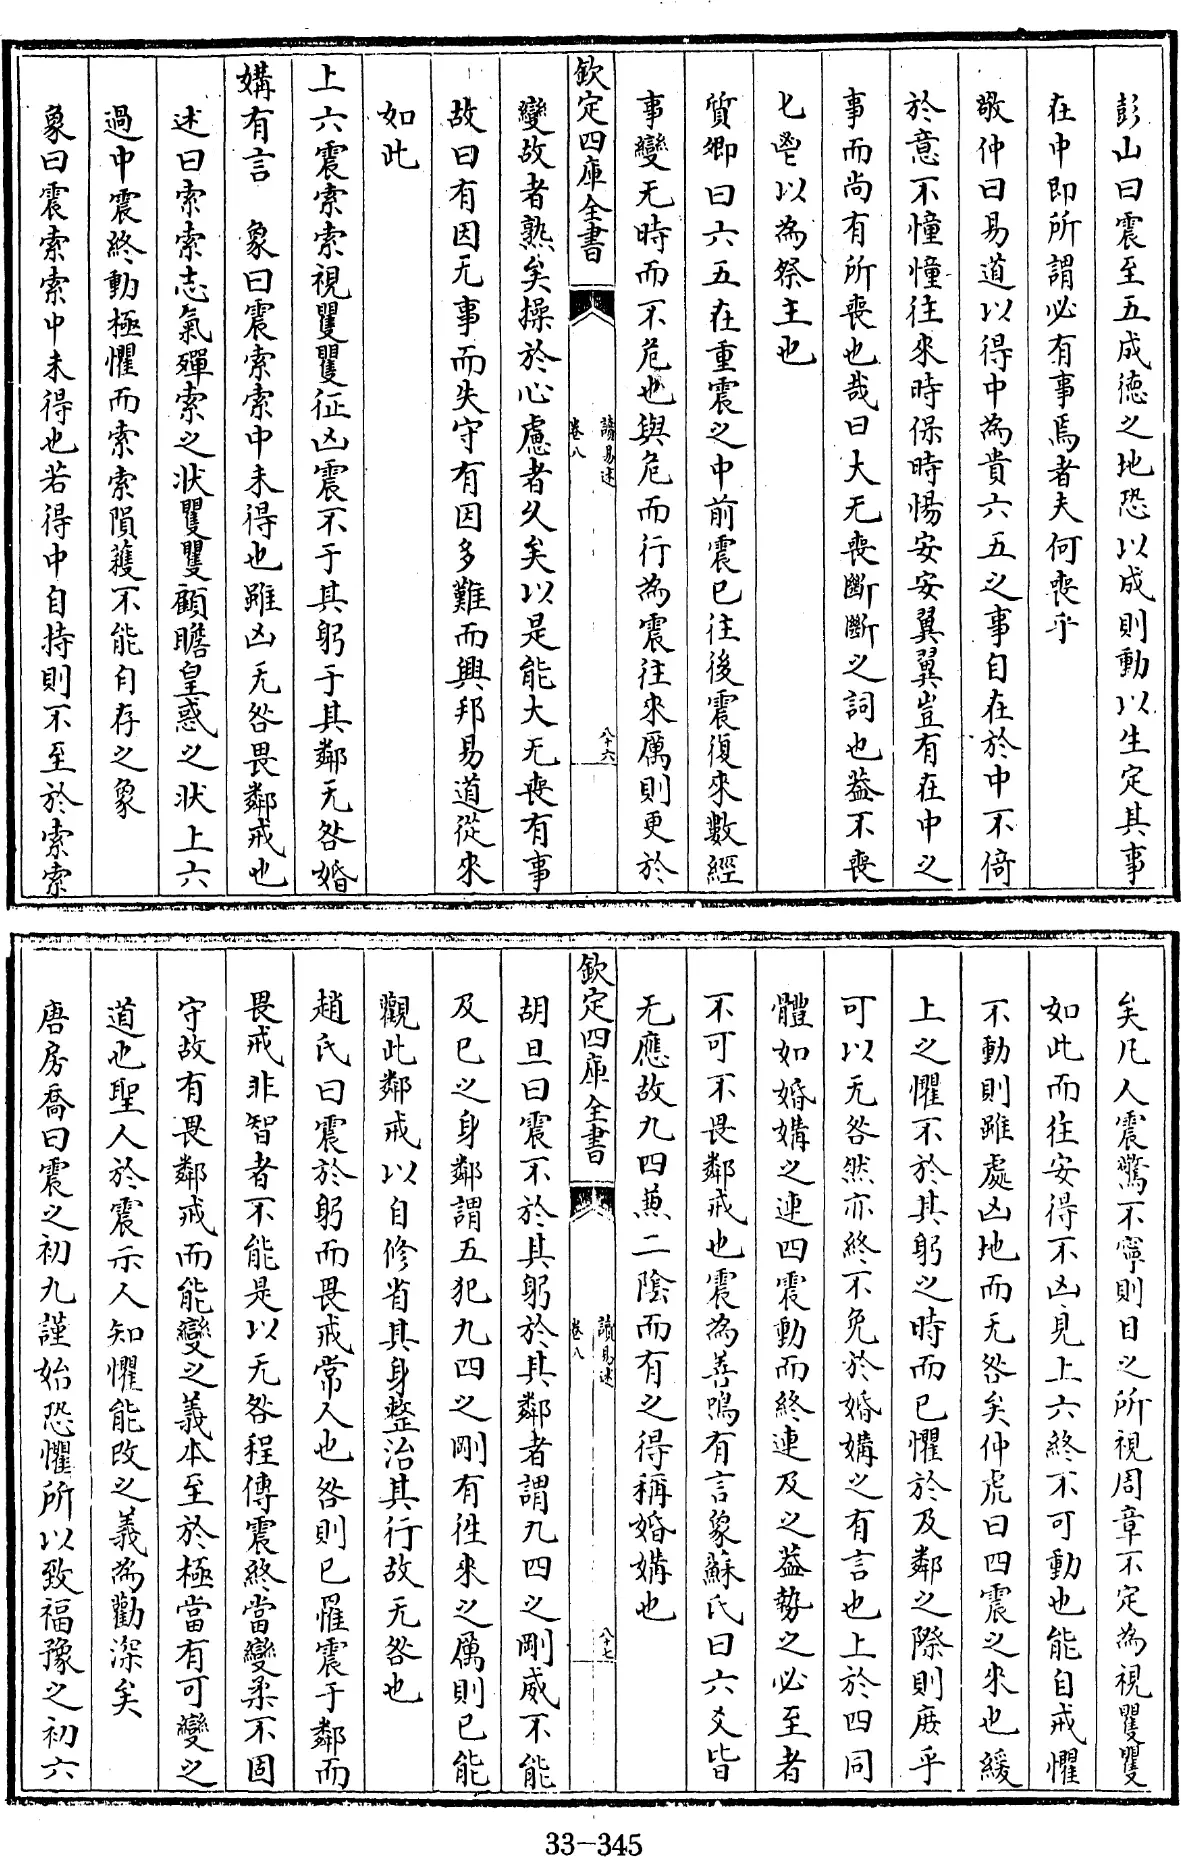 彭山曰震至五成德之地恐以成則動以生定其事
在中即所謂必有事焉者夫何喪乎
敬仲曰易道以得中為貴六五之事自在於中不倚
於意不憧憧往來時保時惕安安翼翼豈有在中之
事而尚有所喪也哉曰大无喪斷斷之詞也葢不喪
匕鬯以為祭主也
質卿曰六五在重震之中前震已往後震復來數經
事變无時而不危也與危而行為震往來厲則更於
欽定四庫全書
讀易述
卷八
八十六
變故者熟矣操於心慮者久矣以是能大无喪有事
故曰有因无事而失守有因多難而興邦易道從來
如此
上六震索索視矍矍征凶震不于其躬于其鄰无咎婚
媾有言 象曰震索索中未得也雖凶无咎畏鄰戒也
述曰索索志氣殫索之狀矍矍顧瞻皇惑之狀上六
過中震終動極懼而索索隕穫不能自存之象
象曰震索索中未得也若得中自持則不至於索索
矣凡人震驚不寧則目之所視周章不定為視矍矍
如此而往安得不凶見上六終不可動也能自戒懼
不動則雖處凶地而无咎矣仲虎曰四震之來也緩
上之懼不於其躬之時而已懼於及鄰之際則庶乎
可以无咎然亦終不免於婚媾之有言也上於四同
體如婚媾之連四震動而終連及之葢勢之必至者
不可不畏鄰戒也震為善鳴有言象蘇氏曰六爻皆
无應故九四兼二陰而有之得稱婚媾也
欽定四庫全書
讀易述
卷八
八十七
胡旦曰震不於其躬於其鄰者謂九四之剛威不能
及已之身鄰謂五犯九四之剛有徃來之厲則已能
觀此鄰戒以自修省其身整治其行故无咎也
趙氏曰震於躬而畏戒常人也咎則已罹震于鄰而
畏戒非智者不能是以无咎程傳震終當變柔不固
守故有畏鄰戒而能變之義本至於極當有可變之
道也聖人於震示人知懼能改之義為勸深矣
唐房喬曰震之初九謹始恐懼所以致福豫之初六
33-345